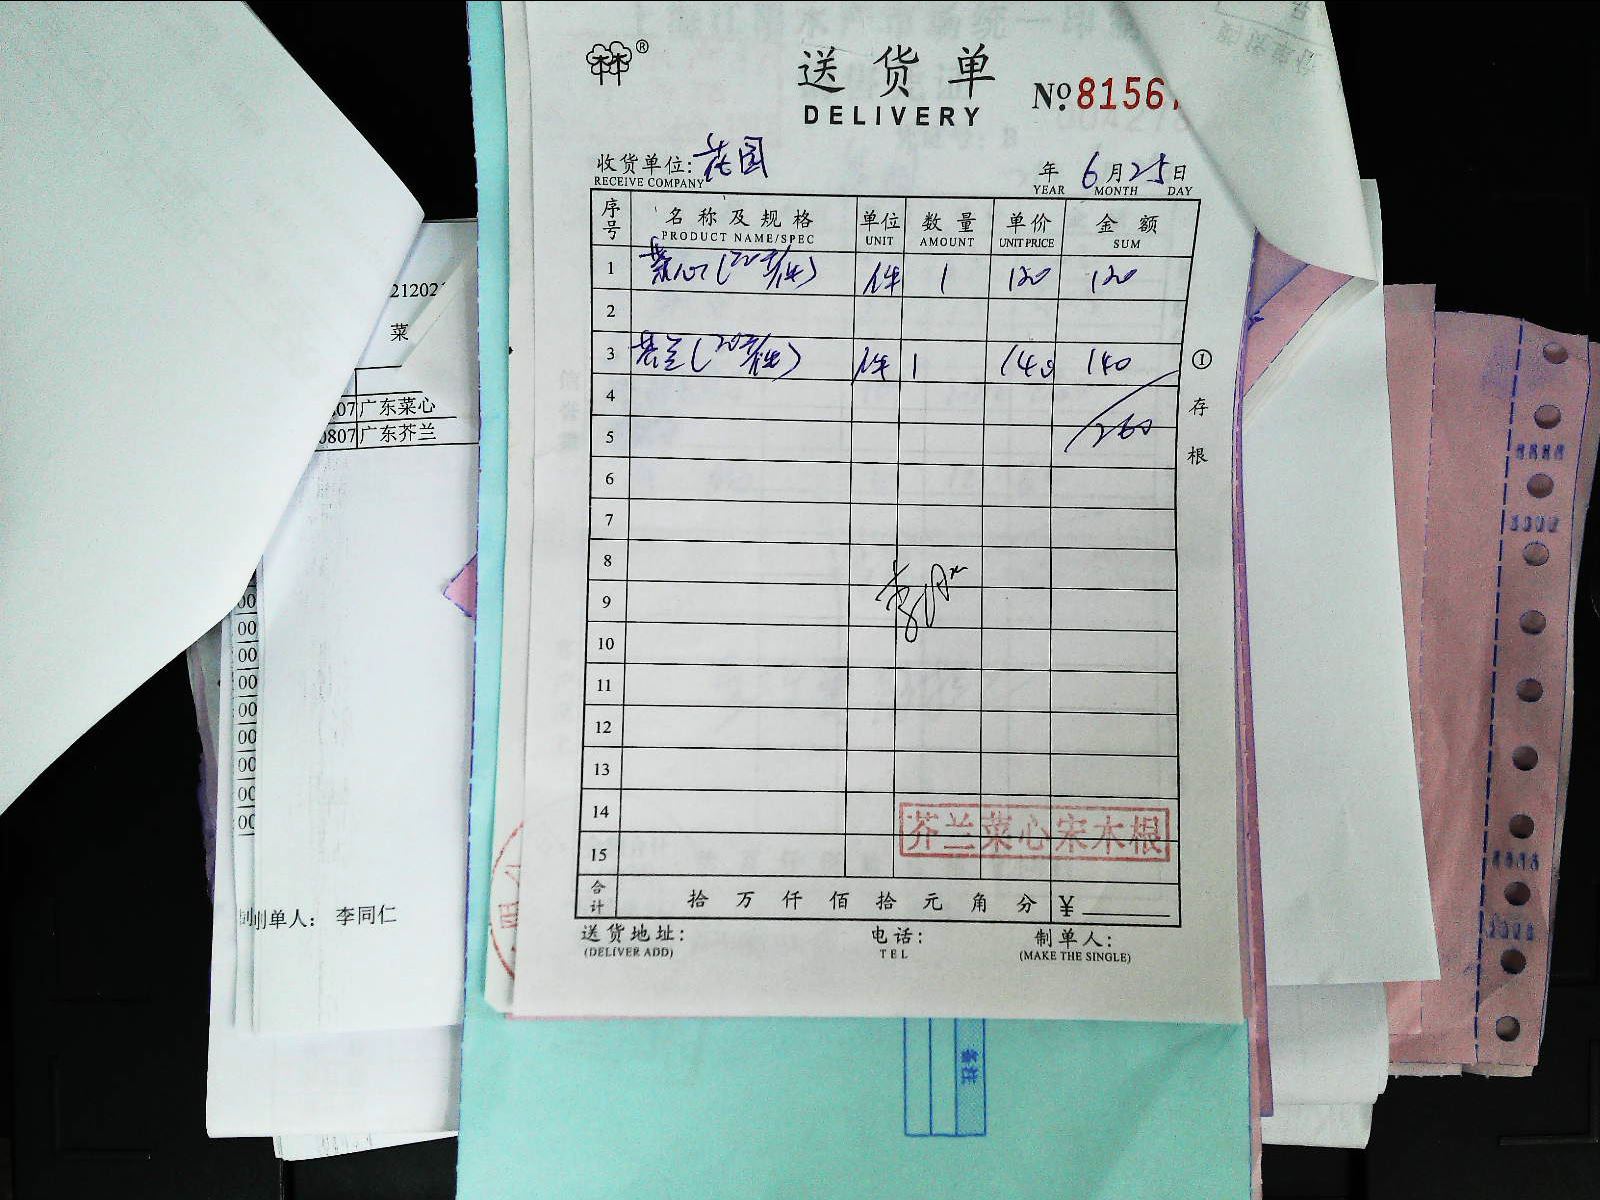 林®
送货单
DELIVERY
№ 8156
收货单位: 花园
RECEIVE COMPANY
年 6月25日
YEAR MONTH DAY
序号 名称及规格 单位 数量 单价 金额
PRODUCT NAME/SPEC UNIT AMOUNT UNIT PRICE SUM
1 菜心(22斤/件) 件 1 120 120
2
3 芥兰(20斤/件) 件 1 140 140
4
5 260
6
7
8
9
10
11
12
13
14
15
芥兰菜心宋木根
合计 拾 万 仟 佰 拾 元 角 分 ¥
送货地址: 电话: 制单人:
(DELIVER ADD) TEL (MAKE THE SINGLE)
①存根
21202
菜
07 广东菜心
0807 广东芥兰
00
00
00
00
00
00
00
00
00
制单人: 李同仁
备注